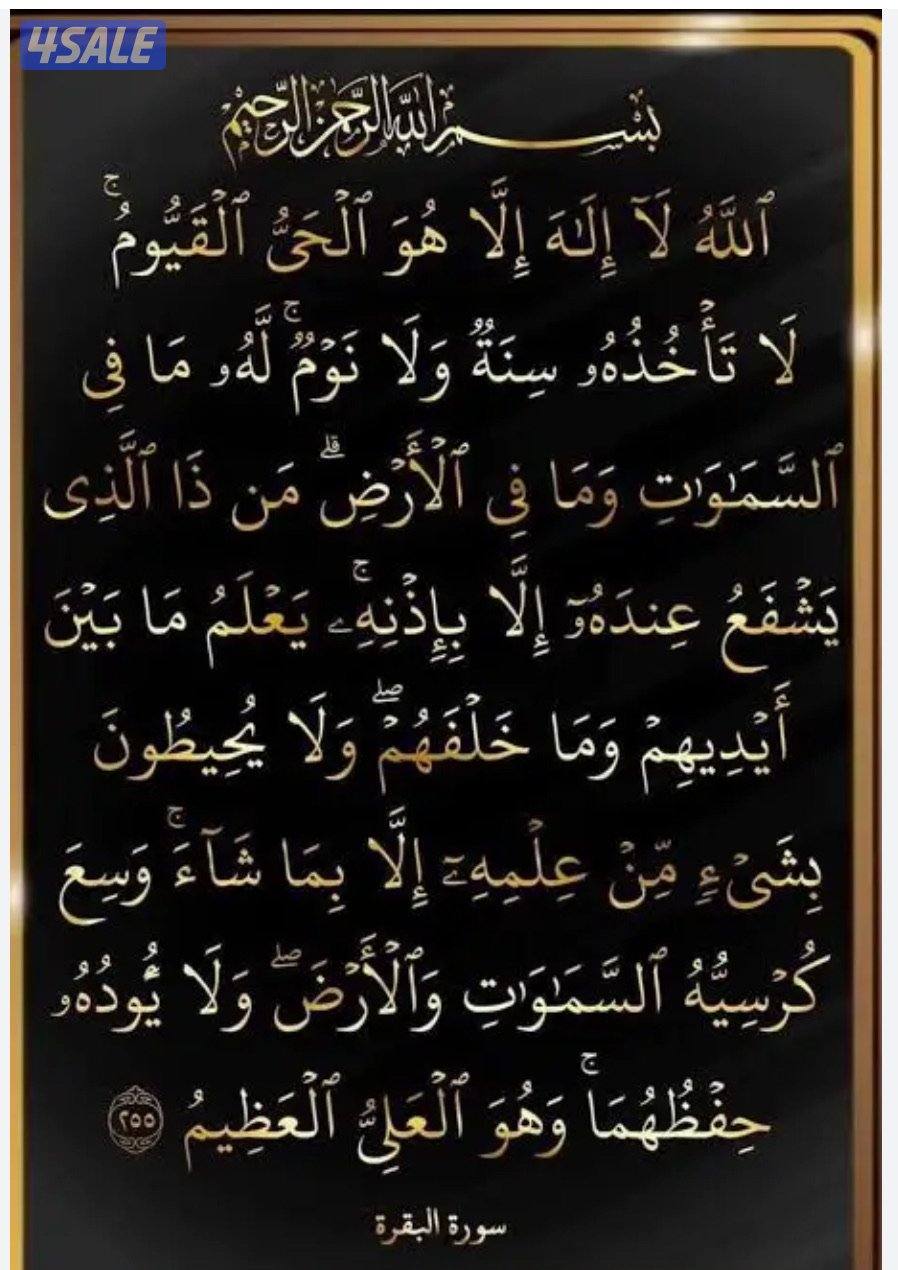 4SALE
بِسْمِ اللَّهِ الرَّحْمَٰنِ الرَّحِيمِ
ٱللَّهُ لَآ إِلَـٰهَ إِلَّا هُوَ ٱلْحَىُّ ٱلْقَيُّومُ ۚ
لَا تَأْخُذُهُۥ سِنَةٌ وَلَا نَوْمٌ ۚ لَّهُۥ مَا فِى
ٱلسَّمَـٰوَٰتِ وَمَا فِى ٱلْأَرْضِ ۗ مَن ذَا ٱلَّذِى
يَشْفَعُ عِندَهُۥٓ إِلَّا بِإِذْنِهِۦ ۚ يَعْلَمُ مَا بَيْنَ
أَيْدِيهِمْ وَمَا خَلْفَهُمْ ۖ وَلَا يُحِيطُونَ
بِشَىْءٍ مِّنْ عِلْمِهِۦٓ إِلَّا بِمَا شَآءَ ۚ وَسِعَ
كُرْسِيُّهُ ٱلسَّمَـٰوَٰتِ وَٱلْأَرْضَ ۖ وَلَا يَـُٔودُهُۥ
حِفْظُهُمَا ۚ وَهُوَ ٱلْعَلِىُّ ٱلْعَظِيمُ ٢٥٥
سورة البقرة